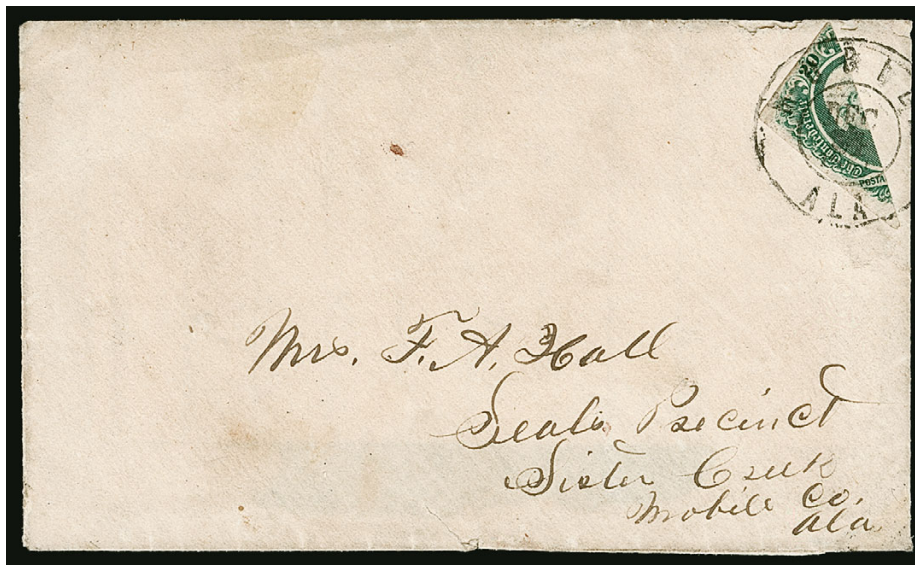 20
ALA
POSTA
Mrs. F. A. Hall
Seals Precinct
Sister Creek
Mobile Co.
Ala